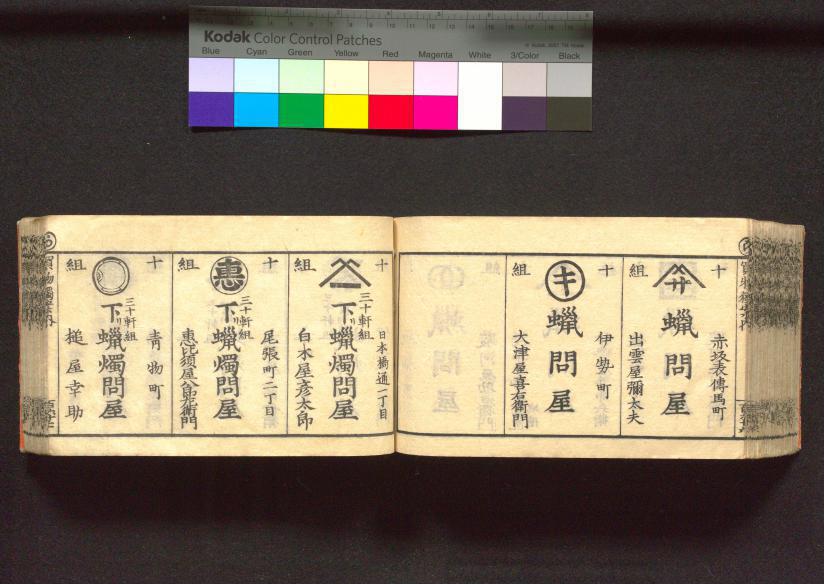 Kodak Color Control Patches
Blue Cyan Green Yellow Red Magenta White 3/Color Black
十組
サ
蠟問屋
赤坂表傳馬町
出雲屋彌太夫
十組
キ
蠟問屋
伊勢町
大津屋喜右衛門
十組
三十軒組
下リ蠟燭問屋
日本橋通一丁目
白木屋彦太郎
十組
惠
三十軒組
下リ蠟燭問屋
尾張町二丁目
惠比須屋八郎左衛門
十組
三十軒組
下リ蠟燭問屋
青物町
槌屋幸助